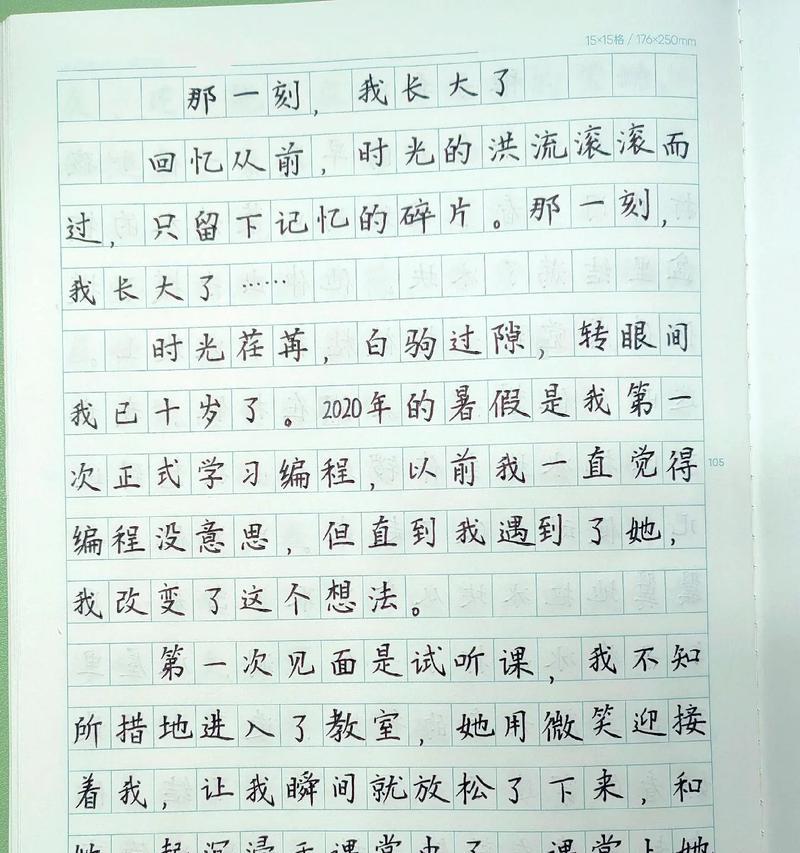 15×15格 / 176×250mm
那一刻，我长大了
回忆从前，时光的洪流滚滚而
过，只留下记忆的碎片。那一刻，
我长大了……
时光荏苒，白驹过隙，转眼间
我已十岁了。2020年的暑假是我第一
次正式学习编程，以前我一直觉得
105
编程没意思，但直到我遇到了她，
我改变了这个想法。
第一次见面是试听课，我不知
所措地进入了教室，她用微笑迎接
着我，让我瞬间就放松了下来，和
她一起沉浸于课堂中了。课堂上她